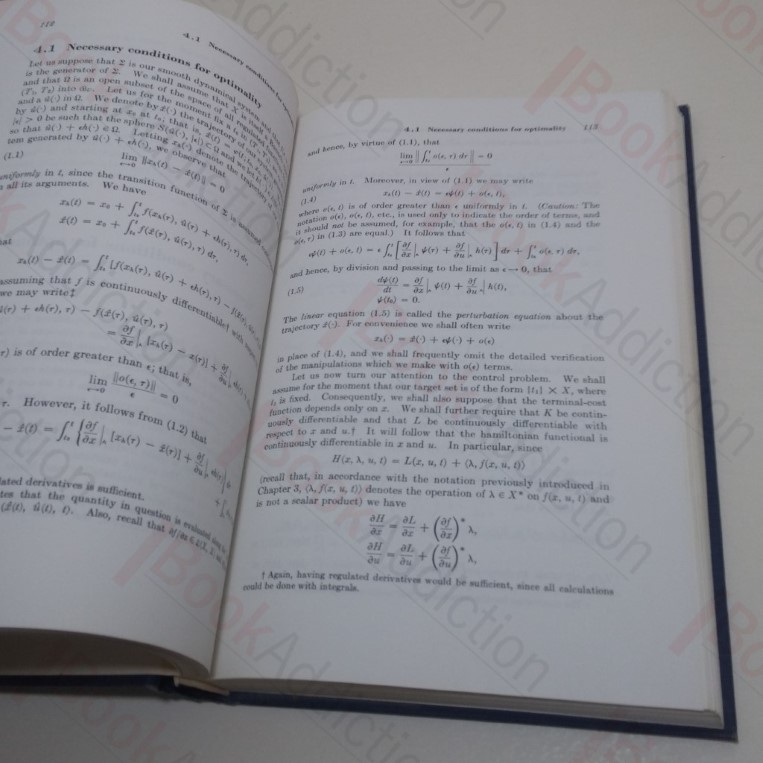 110
4.1 Necessary conditions for
4.1 Necessary conditions for optimality
Let us suppose that Σ is our smooth dynamical system and that
is the generator of Σ. We shall assume that
and that Ω is an open subset of the space of all regulated
(T₁, T₂) into Let us for the moment fix a t₀ in
and a û(·) in Ω. We denote by x̂(·) the trajectory of
by û(·) and starting at x₀ at t₀; that is, x̂(t) =
> 0 be such that the sphere S(û(·),
so that û(·) + εh(·) ∈ Ω. Letting x_h(·) denote the trajectory of
tem generated by û(·) + εh(·), we observe that
(1.1) lim_{ε→0} ‖x_h(t) − x̂(t)‖ = 0
uniformly in t, since the transition function of Σ is
all its arguments. We have
x_h(t) = x₀ + ∫_{t₀}^{t} f(x_h(τ), û(τ) + εh(τ), τ) dτ,
x̂(t) = x₀ + ∫_{t₀}^{t} f(x̂(τ), û(τ), τ) dτ,
x_h(t) − x̂(t) = ∫_{t₀}^{t} [f(x_h(τ), û(τ) + εh(τ), τ) − f(x̂(τ),
assuming that f is continuously differentiable† with
we may write‡
û(τ) + εh(τ), τ) − f(x̂(τ), û(τ), τ)
= ∂f/∂x |ₙ [x_h(τ) − x̂(τ)] + ∂f/∂u
τ) is of order greater than ε; that is,
lim_{ε→0} ‖o(ε, τ)‖/ε = 0
τ. However, it follows from (1.2) that
− x̂(t) = ∫_{t₀}^{t} {∂f/∂x |ₙ [x_h(τ) − x̂(τ)] + ∂f/∂u |ₙ εh(τ)
lated derivatives is sufficient.
tes that the quantity in question is evaluated along the
(x̂(t), û(t), t). Also, recall that
4.1 Necessary conditions for optimality 113
and hence, by virtue of (1.1), that
lim_{ε→0} ‖∫_{t₀}^{t} o(ε, τ) dτ‖/ε = 0
uniformly in t. Moreover, in view of (1.1) we may write
(1.4) x_h(t) − x̂(t) = εψ(t) + o(ε, t),
where o(ε, t) is of order greater than ε uniformly in t. (Caution: The
notation o(ε), o(ε, t), etc., is used only to indicate the order of terms, and
it should not be assumed, for example, that the o(ε, t) in (1.4) and the
o(ε, τ) in (1.3) are equal.) It follows that
εψ(t) + o(ε, t) = ε ∫_{t₀}^{t} [∂f/∂x |ₙ ψ(τ) + ∂f/∂u |ₙ h(τ)] dτ + ∫_{t₀}^{t} o(ε, τ) dτ,
and hence, by division and passing to the limit as ε → 0, that
(1.5) dψ(t)/dt = ∂f/∂x |ₙ ψ(t) + ∂f/∂u |ₙ h(t),
ψ(t₀) = 0.
The linear equation (1.5) is called the perturbation equation about the
trajectory x̂(·). For convenience we shall often write
x_h(·) = x̂(·) + εψ(·) + o(ε)
in place of (1.4), and we shall frequently omit the detailed verification
of the manipulations which we make with o(ε) terms.
Let us now turn our attention to the control problem. We shall
assume for the moment that our target set is of the form {t₁} × X, where
t₁ is fixed. Consequently, we shall also suppose that the terminal-cost
function depends only on x. We shall further require that K be contin-
uously differentiable and that L be continuously differentiable with
respect to x and u.† It will follow that the hamiltonian functional is
continuously differentiable in x and u. In particular, since
H(x, λ, u, t) = L(x, u, t) + ⟨λ, f(x, u, t)⟩
(recall that, in accordance with the notation previously introduced in
Chapter 3, ⟨λ, f(x, u, t)⟩ denotes the operation of λ ∈ X* on f(x, u, t) and
is not a scalar product) we have
∂H/∂x = ∂L/∂x + (∂f/∂x)* λ,
∂H/∂u = ∂L/∂u + (∂f/∂u)* λ,
† Again, having regulated derivatives would be sufficient, since all calculations
could be done with integrals.
BookAddiction